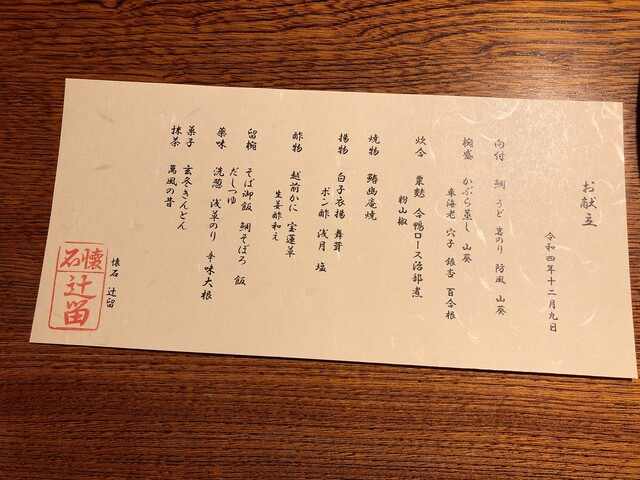 お献立
令和四年十二月九日
向付 鯛 うど 岩のり 防風 山葵
椀盛 かぶら蒸し 山葵
車海老 穴子 銀杏 百合根
炊合 粟麩 合鴨ロース治部煮
粉山椒
焼物 鰆幽庵焼
揚物 白子衣揚 舞茸
ポン酢 浅月 塩
酢物 越前かに 宝蓮草
生姜酢和え
留椀 そば御飯 鯛そぼろ 飯
だしつゆ
薬味 洗葱 浅草のり 辛味大根
菓子 玄冬きんとん
抹茶 萬風の昔
懐石 辻留
懐石
辻留